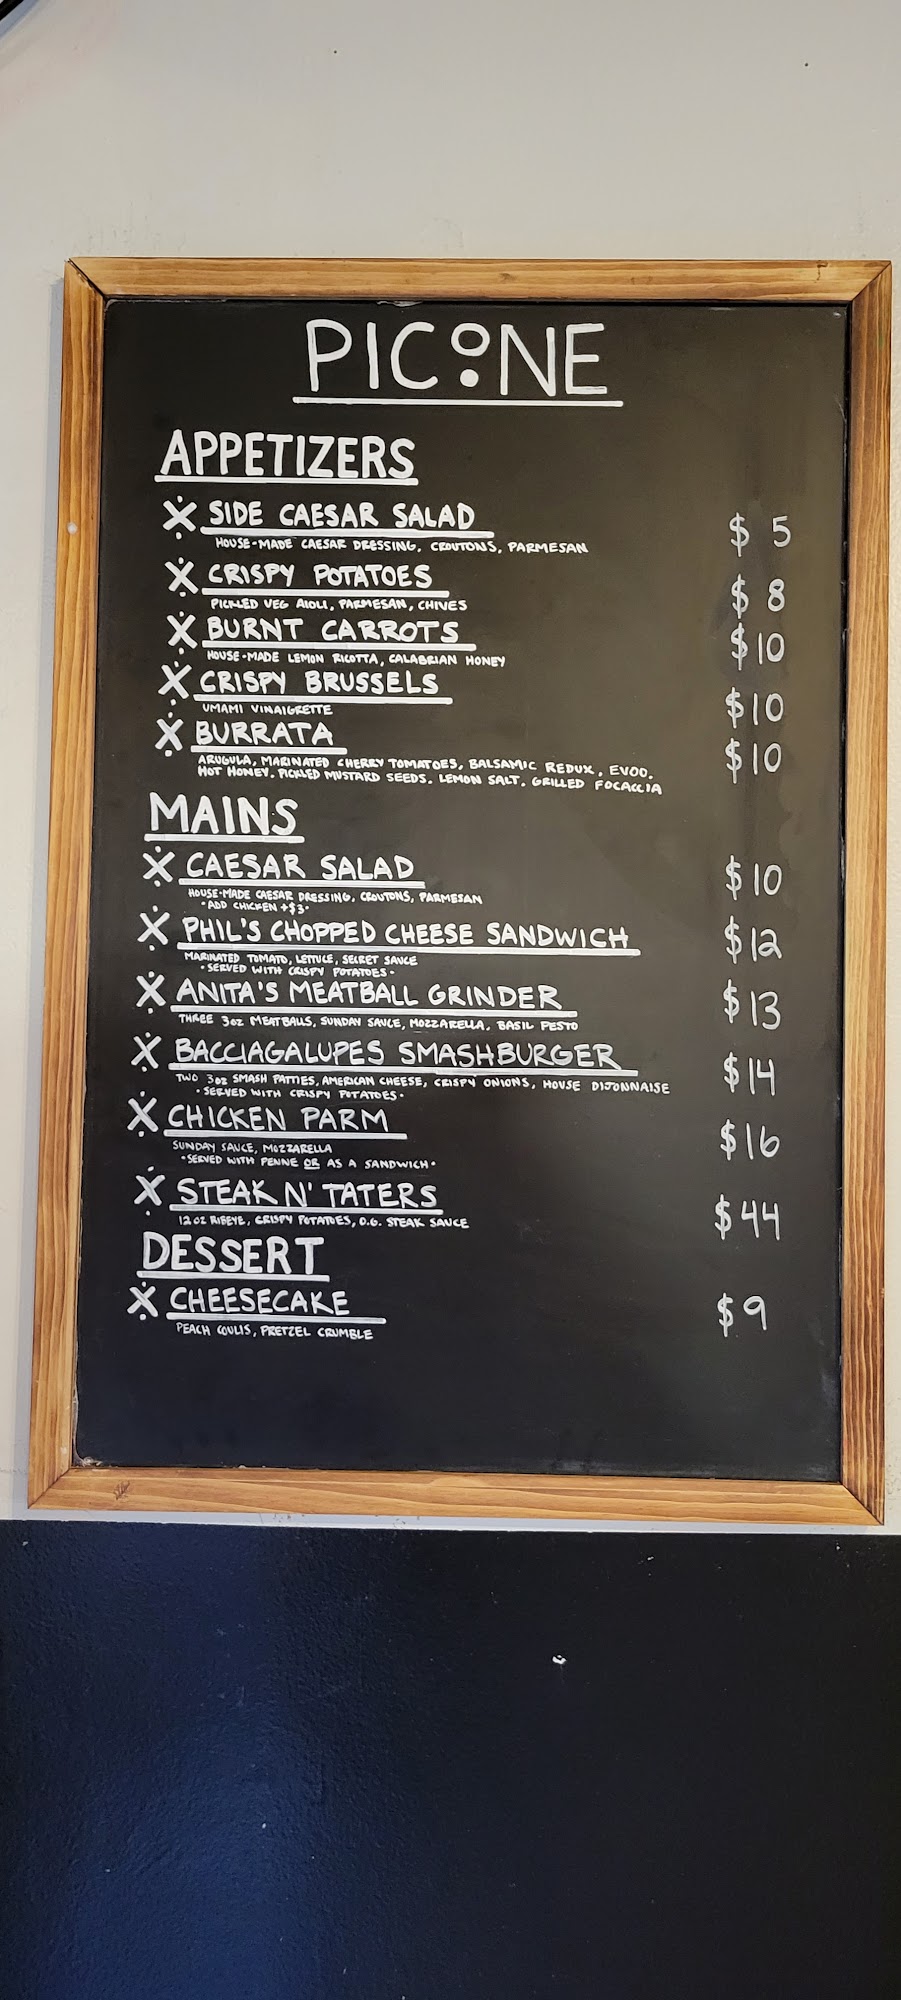 PICONE
APPETIZERS
SIDE CAESAR SALAD $5
HOUSE-MADE CAESAR DRESSING, CROUTONS, PARMESAN
CRISPY POTATOES $8
PICKLED VEG AIOLI, PARMESAN, CHIVES
BURNT CARROTS $10
HOUSE-MADE LEMON RICOTTA, CALABRIAN HONEY
CRISPY BRUSSELS $10
UMAMI VINAIGRETTE
BURRATA $10
ARUGULA, MARINATED CHERRY TOMATOES, BALSAMIC REDUX, EVOO,
HOT HONEY, PICKLED MUSTARD SEEDS, LEMON SALT, GRILLED FOCACCIA
MAINS
CAESAR SALAD $10
HOUSE-MADE CAESAR DRESSING, CROUTONS, PARMESAN
•ADD CHICKEN +$3•
PHIL'S CHOPPED CHEESE SANDWICH $12
MARINATED TOMATO, LETTUCE, SECRET SAUCE
•SERVED WITH CRISPY POTATOES•
ANITA'S MEATBALL GRINDER $13
THREE 3OZ MEATBALLS, SUNDAY SAUCE, MOZZARELLA, BASIL PESTO
BACCIAGALUPES SMASHBURGER $14
TWO 3OZ SMASH PATTIES, AMERICAN CHEESE, CRISPY ONIONS, HOUSE DIJONNAISE
•SERVED WITH CRISPY POTATOES•
CHICKEN PARM $16
SUNDAY SAUCE, MOZZARELLA
•SERVED WITH PENNE OR AS A SANDWICH•
STEAK N' TATERS $44
12OZ RIBEYE, CRISPY POTATOES, O.G. STEAK SAUCE
DESSERT
CHEESECAKE $9
PEACH COULIS, PRETZEL CRUMBLE